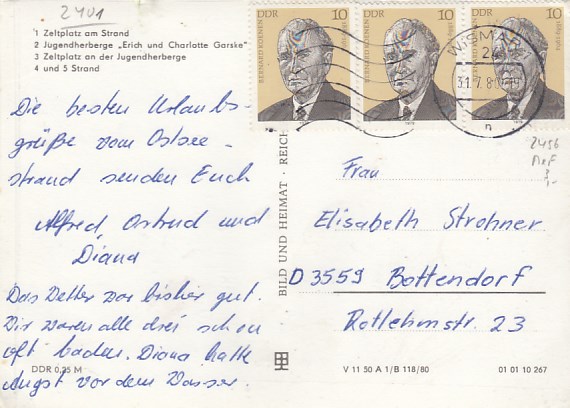 2401
1 Zeltplatz am Strand
2 Jugendherberge „Erich und Charlotte Garske"
3 Zeltplatz an der Jugendherberge
4 und 5 Strand
DDR 10
BERNARD KOENEN
DDR 10
BERNARD KOENEN
10
WISMAR
2
31.7.8
n
2456
MeF
3,-
Die besten Urlaubs-
grüße vom Ostsee-
strand senden Euch
Alfred, Astrid und
Diana
Das Wetter war bisher gut.
Wir waren alle drei schon
oft baden. Diana hatte
Angst vor dem Wasser.
Frau
Elisabeth Strohner
D 3559 Bottendorf
Rotlehmstr. 23
BILD UND HEIMAT · REICH
DDR 0,25 M
V 11 50 A 1/B 118/80
01 01 10 267